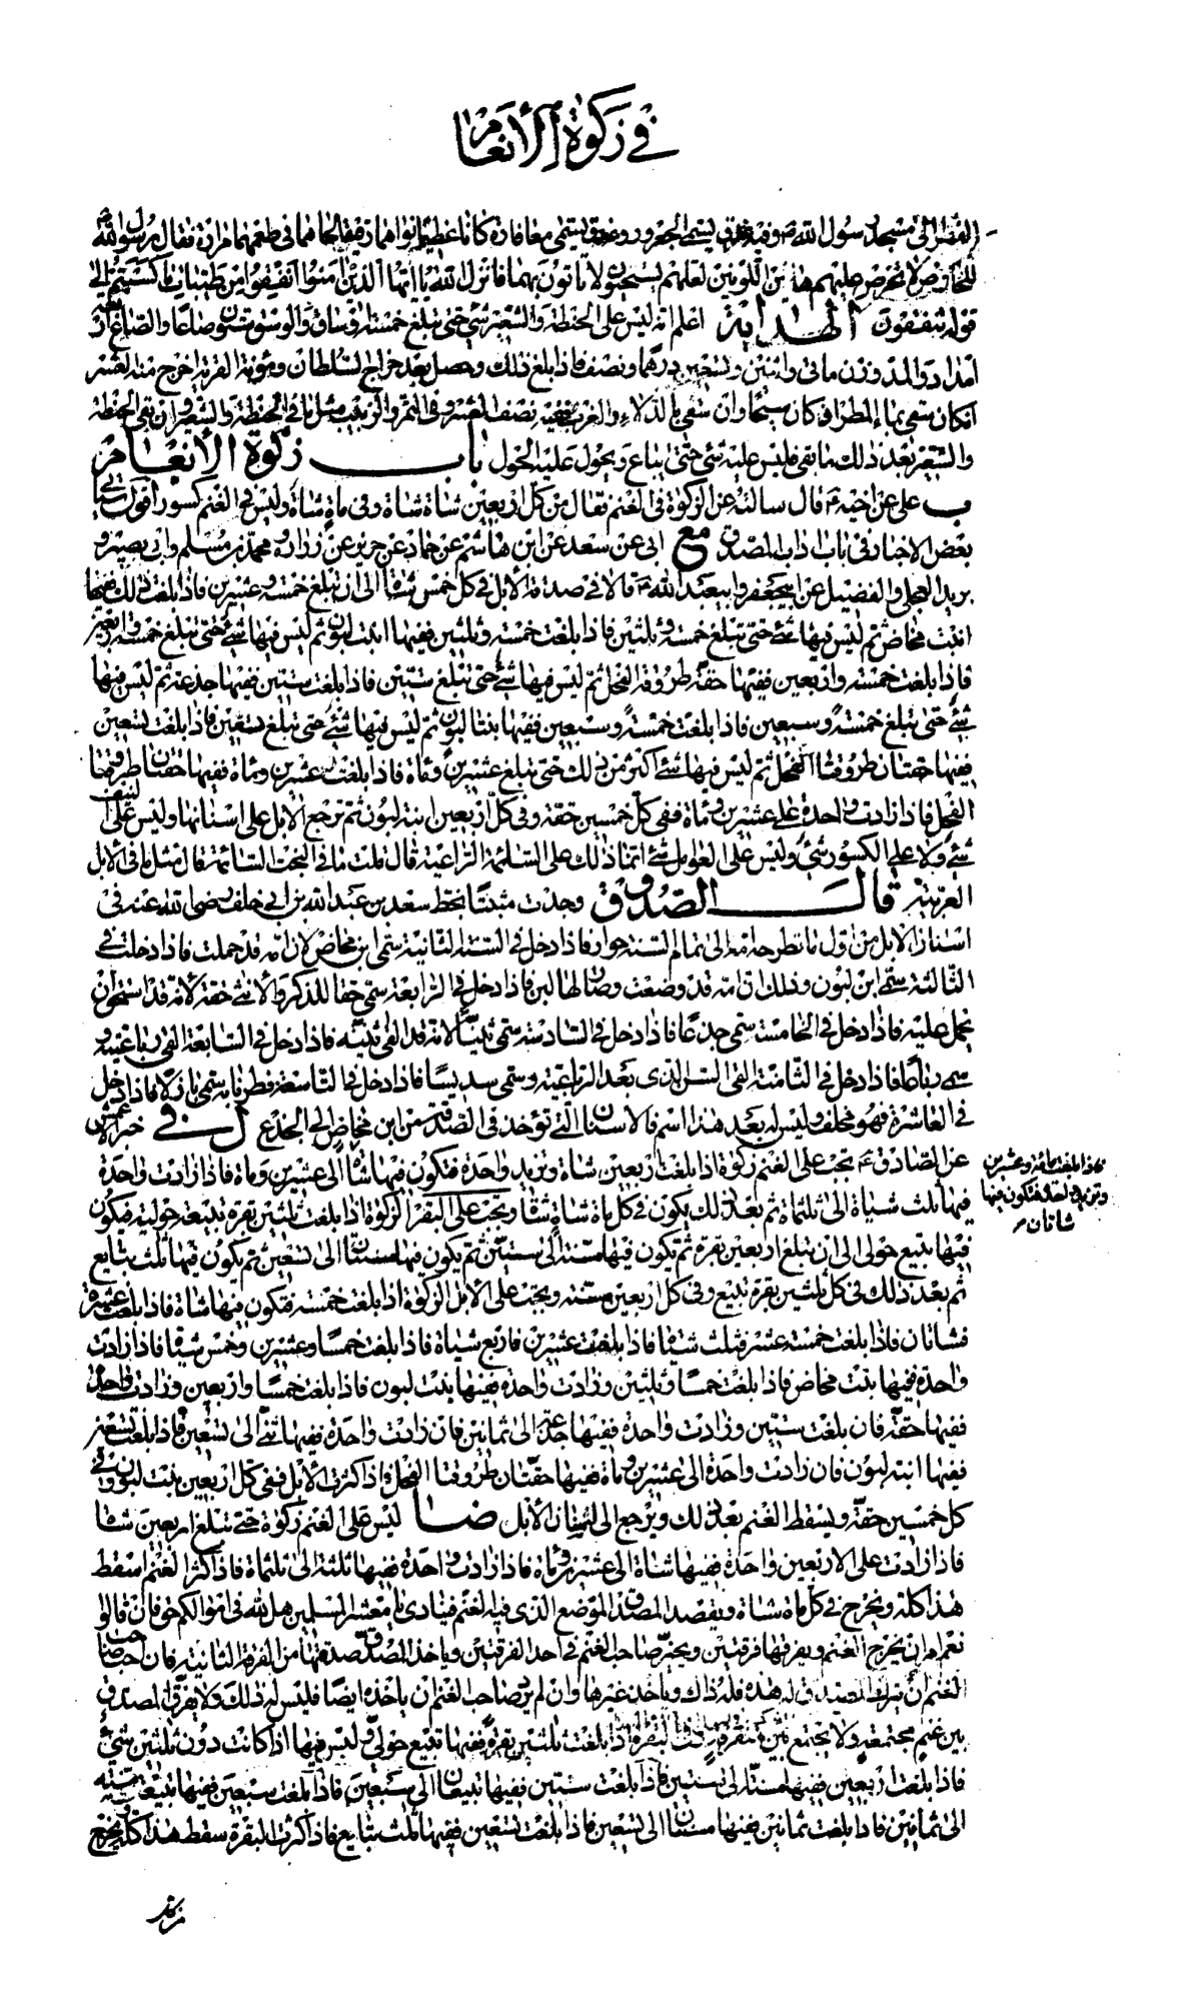 في زكوة الأنعام
الفقراء في مسجد رسول الله ص وفيه عذق يسمى الجعرور وعذق يسمى معافارة كانا عظيم نواهما رقيق لحاهما في طعمهما مرارة فقال رسول الله
للخارص لا تخرص عليهم هذين اللونين لعلهم يستحيون لا يأتون بهما فانزل الله يا ايها الذين امنوا انفقوا من طيبات ما كسبتم الى
قوله تنفقون الهداية اعلم انه ليس على الحنطة والشعير شيء حتى تبلغ خمسة اوساق والوسق ستون صاعا والصاع اربعة
امداد والمد وزن مائتي واثنين وتسعين درهما ونصف فاذا بلغ ذلك وحصل بعد خراج السلطان ومؤنة القرية اخرج منه العشر
انكان سقي بماء المطر او كان سيحا وان سقي بالدلاء والغرب ففيه نصف العشر وفي التمر والزبيب مثل ما في الحنطة والشعير وان بقي الحنطة
والشعير بعد ذلك ما بقي فليس عليه شيء حتى يباع ويحول عليه الحول باب زكوة الأنعام
ب علي عن اخيه ع قال سالته عن الزكوة في الغنم فقال من كل اربعين شاة شاة وفي مائة شاة وليس في الغنم كسور اقول سيأتي
بعض الاخبار في باب اداب المصدق مع ابي عن سعد عن ابن هاشم عن حماد عن حريز عن زرارة ومحمد بن مسلم وابي بصير و
بريد العجلي والفضيل عن ابيجعفر وابيعبد الله ع قالا في صدقة الأبل في كل خمس شاة الى ان تبلغ خمسة وعشرين فاذا بلغت ذلك ففيها
ابنت مخاض ثم ليس فيها شيء حتى تبلغ خمسة وثلثين فاذا بلغت خمسة وثلثين ففيها ابنت لبون ثم ليس فيها شيء حتى تبلغ خمسة واربعين
فاذا بلغت خمسة واربعين ففيها حقة طروقة الفحل ثم ليس فيها شيء حتى تبلغ ستين فاذا بلغت ستين ففيها جذعة ثم ليس فيها
شيء حتى تبلغ خمسة وسبعين فاذا بلغت خمسة وسبعين ففيها بنتا لبون ثم ليس فيها شيء حتى تبلغ تسعين فاذا بلغت تسعين
ففيها حقتان طروقتا الفحل ثم ليس فيها شيء اكثر من ذلك حتى تبلغ عشرين ومأة فاذا بلغت عشرين ومأة ففيها حقتان طروقتا
الفحل فاذا زادت واحدة على عشرين ومأة ففي كل خمسين حقة وفي كل اربعين ابنة لبون ثم ترجع الأبل على اسنانها وليس على النيف
شيء ولا على الكسور شيء وليس على العوامل شيء انما ذلك على السائمة الراعية قال قلت ما في البخت السائمة قال مثل ما في الأبل
العربية قال الصدوق وجدت مثبتا بخط سعد بن عبد الله بن ابي خلف رضي الله عنه في
اسنان الأبل من اول ما تطرحه امه الى تمام السنة حوار فاذا دخل في السنة الثانية سمي ابن مخاض لان امه قد حملت فاذا دخلت في
الثالثة سمي ابن لبون وذلك ان امه قد وضعت وصار لها لبن فاذا دخل في الرابعة سمي حقا للذكر والأنثى حقة لأنه قد استحق ان
يحمل عليه فاذا دخل في الخامسة سمي جذعا فاذا دخل في السادسة سمي ثنيا لانه قد القى ثنيته فاذا دخل في السابعة القى رباعيته و
سمي رباعا فاذا دخل في الثامنة القى السن الذي بعد الرباعية وسمي سديسا فاذا دخل في التاسعة فطر نابه سمي بازلا فاذا دخل
في العاشرة فهو مخلف وليس له بعد هذا اسم فالأسنان التي تؤخذ في الصدقة من ابن مخاض الى الجذع ل في خبر الاعمش
عن الصادق ع تجب على الغنم زكوة اذا بلغت اربعين شاة وتزيد واحدة فتكون فيها شاة الى عشرين ومأة فاذا زادت واحدة
فيها ثلث شياة الى ثلثمأة ثم بعد ذلك يكون في كل مأة شاة شاة وتجب على البقر الزكوة اذا بلغت ثلثين بقرة تبيعة حولية فيكون
فيها تبيع حولي الى ان تبلغ اربعين بقرة ثم يكون فيها مسنة الى ستين ثم يكون فيها مسنتان الى تسعين ثم يكون فيها ثلث تبايع
ثم بعد ذلك في كل ثلثين بقرة تبيع وفي كل اربعين مسنة ويجب على الأبل الزكوة اذا بلغت خمسة فتكون فيها شاة فاذا بلغت عشرة
فشاتان فاذا بلغت خمسة عشر فثلث شياة فاذا بلغت عشرين فاربع شياة فاذا بلغت خمسا وعشرين وخمس شياة فاذا زادت
واحدة ففيها بنت مخاض فاذا بلغت خمسا وثلثين وزادت واحدة ففيها بنت لبون فاذا بلغت خمسا واربعين وزادت واحدة
ففيها حقة فان بلغت ستين وزادت واحدة ففيها جذعة الى ثمانين فان زادت واحدة ففيها ثني الى تسعين فاذا بلغت تسعين
ففيها ابنة لبون فان زادت واحدة الى عشرين ومأة ففيها حقتان طروقتا الفحل فاذا كثرت الأبل ففي كل اربعين بنت لبون وفي
كل خمسين حقة ويسقط الغنم بعد ذلك ويرجع الى اسنان الأبل ضا ليس على الغنم زكوة حتى تبلغ اربعين شاة
فاذا زادت على الاربعين واحدة ففيها شاة الى عشرين ومأة فاذا زادت واحدة ففيها ثلثة الى ثلثمأة فاذا كثر الغنم اسقط
هذا كله ويخرج في كل مأة شاة ويقصد المصدق الموضع الذي فيه الغنم فينادي يا معشر المسلمين هل لله في اموالكم حق فان قالوا
نعم امر ان يخرج الغنم ويفرقها فرقتين ويخير صاحب الغنم في احد الفرقتين وياخذ المصدق صدقتها من الفرقة الثانية فان احب صاحب
الغنم ان يترك المصدق له هذه فله ذاك وياخذ غيرها وان لم يرض صاحب الغنم ان ياخذه ايضا فليس له ذلك ولا يفرق المصدق
بين غنم مجتمعة ولا يجتمع بين متفرقة البقرة اذا بلغت ثلثين بقرة ففيها تبيع حولي وليس فيها اذا كانت دون ثلثين شيء
فاذا بلغت اربعين ففيها مسنة الى ستين فاذا بلغت ستين ففيها تبيعان الى سبعين فاذا بلغت سبعين ففيها تبيعة ومسنة
الى ثمانين فاذا بلغت ثمانين ففيها مسنتان الى تسعين فاذا بلغت تسعين ففيها ثلث تبايع فاذا كثرت البقرة سقط هذا كله ويخرج
فاذا بلغت مائة وعشرين
وتزيد واحدة فتكون فيها
شاتان
من كل